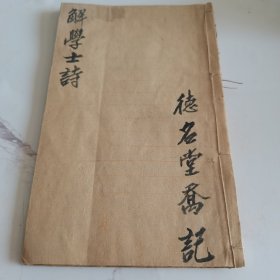 解學士詩
德名堂喬記